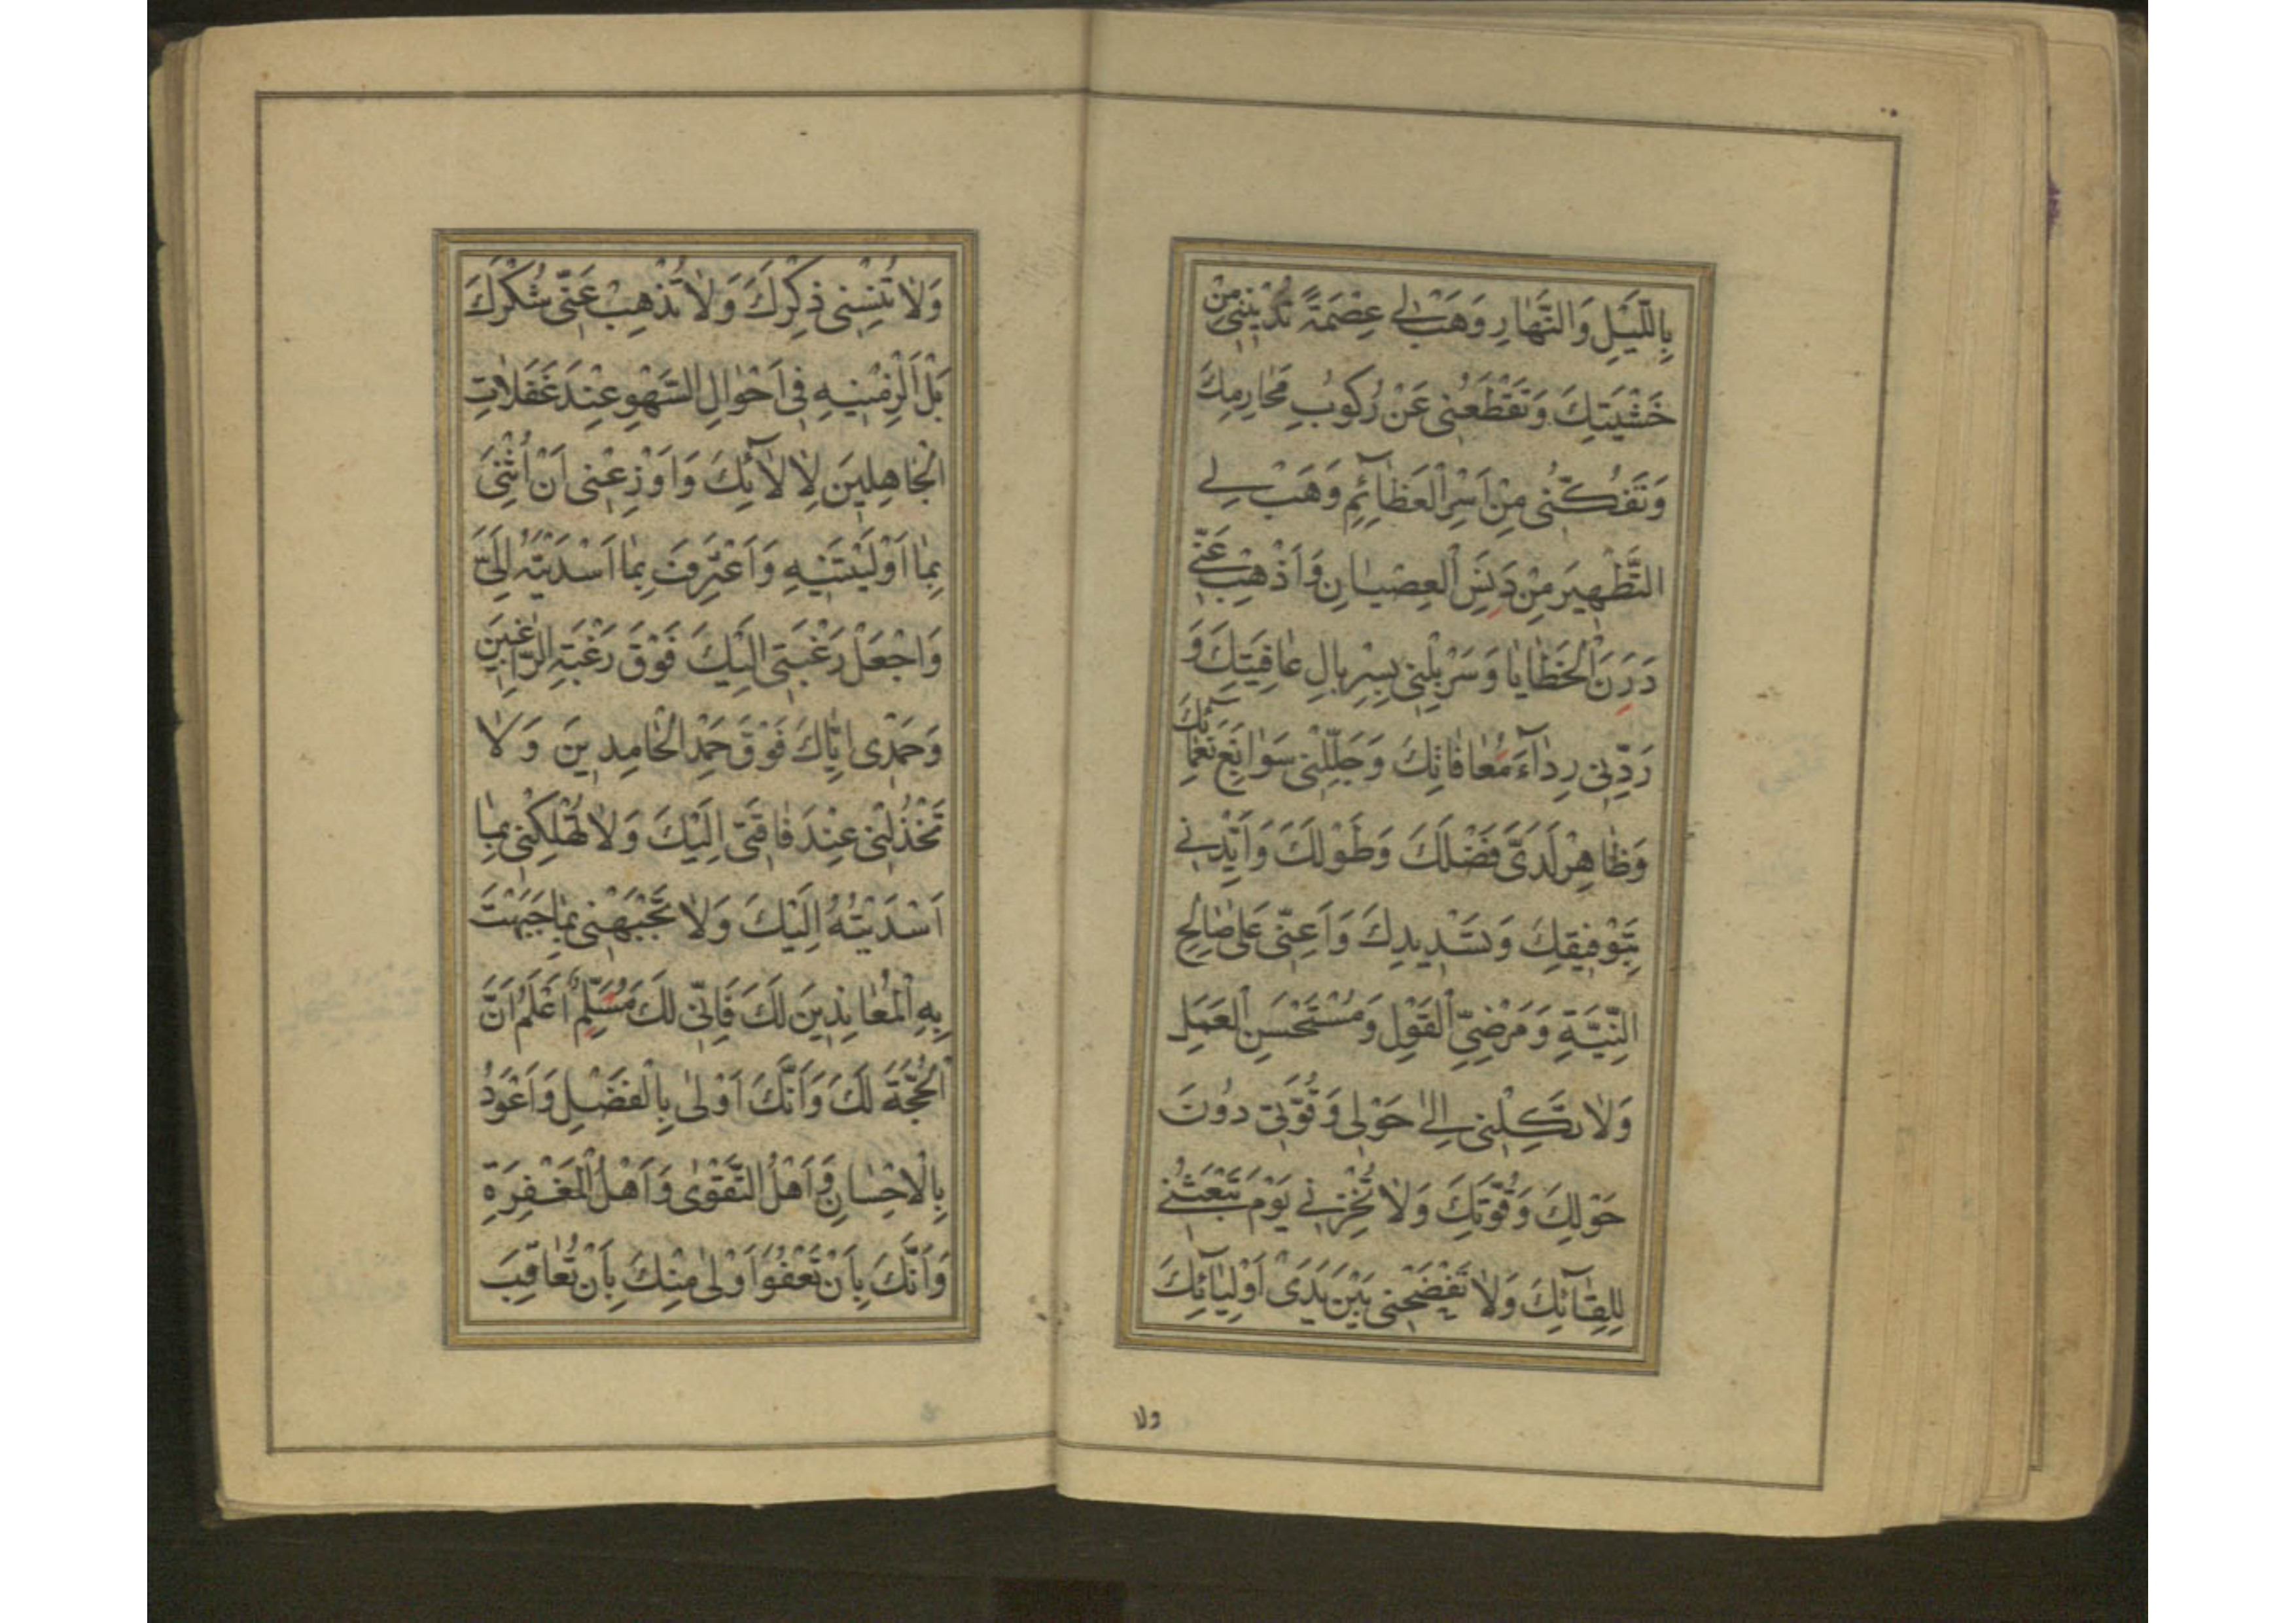 بِاللَّيْلِ وَالنَّهَارِ وَهَبْ لِي عِصْمَةً تُدْنِينِي مِنْ
خَشْيَتِكَ وَتَقْطَعُنِي عَنْ رُكُوبِ مَحَارِمِكَ
وَتَفُكُّنِي مِنْ اَسْرِ الْعَظَآئِمِ وَهَبْ لِي
التَّطْهِيرَ مِنْ دَنَسِ الْعِصْيَانِ وَاَذْهِبْ عَنِّي
دَرَنَ الْخَطَايَا وَسَرْبِلْنِي بِسِرْبَالِ عَافِيَتِكَ وَ
رَدِّنِي رِدَآءَ مُعَافَاتِكَ وَجَلِّلْنِي سَوَابِغَ نَعْمَآئِكَ
وَظَاهِرْ لَدَيَّ فَضْلَكَ وَطَوْلَكَ وَاَيِّدْنِي
بِتَوْفِيقِكَ وَتَسْدِيدِكَ وَاَعِنِّي عَلَى صَالِحِ
النِّيَّةِ وَمَرْضِيِّ الْقَوْلِ وَمُسْتَحْسَنِ الْعَمَلِ
وَلَا تَكِلْنِي اِلَى حَوْلِي وَقُوَّتِي دُونَ
حَوْلِكَ وَقُوَّتِكَ وَلَا تُخْزِنِي يَوْمَ تَبْعَثُنِي
لِلِقَآئِكَ وَلَا تَفْضَحْنِي بَيْنَ يَدَيْ اَوْلِيَآئِكَ
ولا
وَلَا تُنْسِنِي ذِكْرَكَ وَلَا تُذْهِبْ عَنِّي شُكْرَكَ
بَلْ اَلْزِمْنِيهِ فِي اَحْوَالِ السَّهْوِ عِنْدَ غَفَلَاتِ
الْجَاهِلِينَ لِاٰلَآئِكَ وَاَوْزِعْنِي اَنْ اُثْنِيَ
بِمَا اَوْلَيْتَنِيهِ وَاَعْتَرِفَ بِمَا اَسْدَيْتَهُ اِلَيَّ
وَاجْعَلْ رَغْبَتِي اِلَيْكَ فَوْقَ رَغْبَةِ الرَّاغِبِينَ
وَحَمْدِي اِيَّاكَ فَوْقَ حَمْدِ الْحَامِدِينَ وَلَا
تَخْذُلْنِي عِنْدَ فَاقَتِي اِلَيْكَ وَلَا تُهْلِكْنِي بِمَا
اَسْدَيْتُهُ اِلَيْكَ وَلَا تَجْبَهْنِي بِمَا جَبَهْتَ
بِهِ الْمُعَانِدِينَ لَكَ فَاِنِّي لَكَ مُسَلِّمٌ اَعْلَمُ اَنَّ
الْحُجَّةَ لَكَ وَاَنَّكَ اَوْلَى بِالْفَضْلِ وَاَعْوَدُ
بِالْاِحْسَانِ وَاَهْلُ التَّقْوَى وَاَهْلُ الْمَغْفِرَةِ
وَاَنَّكَ بِاَنْ تَعْفُوَ اَوْلَى مِنْكَ بِاَنْ تُعَاقِبَ